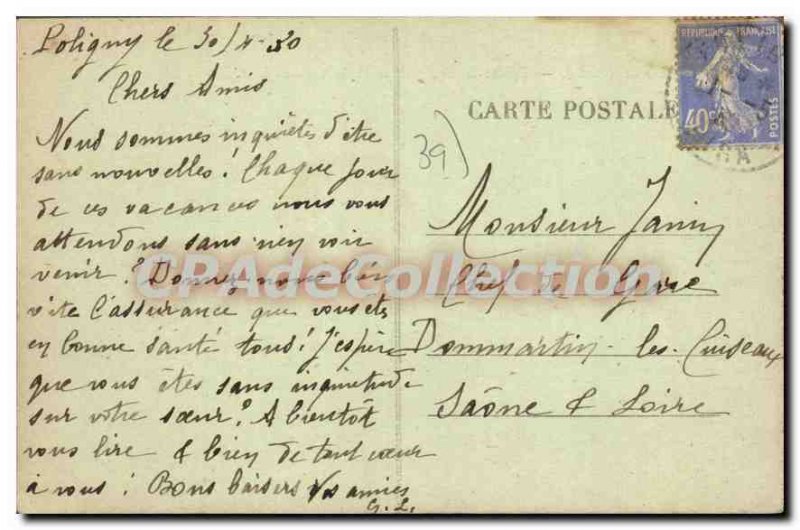 Poligny le 30/4-30
Chers Amis
Nous sommes inquiètes d'être
sans nouvelles! Chaque jour
de ces vacances nous vous
attendons sans rien voir
venir? Donnez nous bien
vite l'assurance que vous êtes
en bonne santé tous! J'espère
que vous êtes sans inquiétude
sur votre sœur? A bientôt
vous lire & bien de tout cœur
à vous! Bons baisers Vos amies
G. L.
CARTE POSTALE
39)
Monsieur Janin
Chef de Gare
Dommartin-les-Cuiseaux
Saône & Loire
REPUBLIQUE FRANÇAISE
40c
POSTES
CPAdeCollection.com